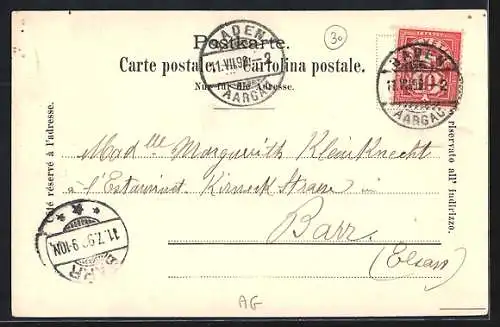 30
Postkarte.
Carte postale. Cartolina postale.
Nur für die Adresse.
BADEN
11.VII.98.
AARGAU
HELVETIA
10
BADEN
11.VII.98. 2
AARGAU
Côté réservé à l'adresse.
Lato riservato all' indirizzo.
Madlle Margarith KleinKnecht
à l'Estaminet Kirneck Strasse
in
Barr
(Elsass)
BARR
11.7.98 9-10N.
AG